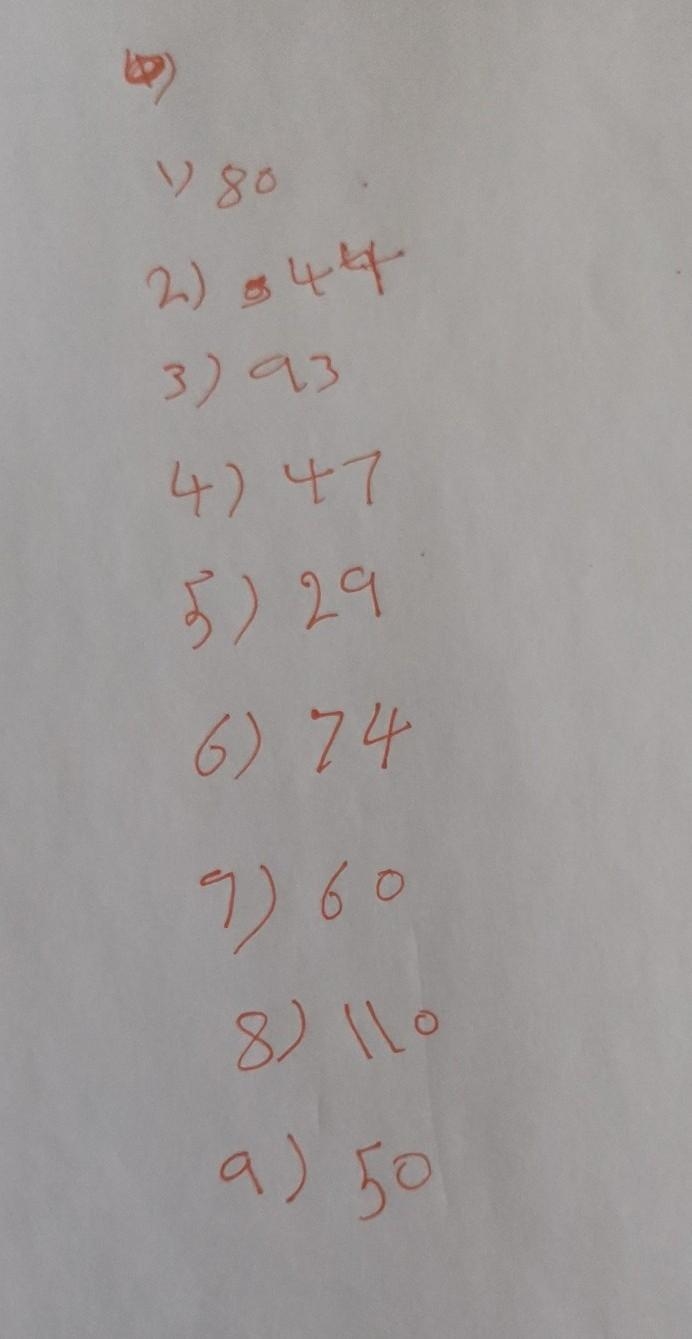 1) 80
2) 44
3) 93
4) 47
5) 29
6) 74
7) 60
8) 110
9) 50